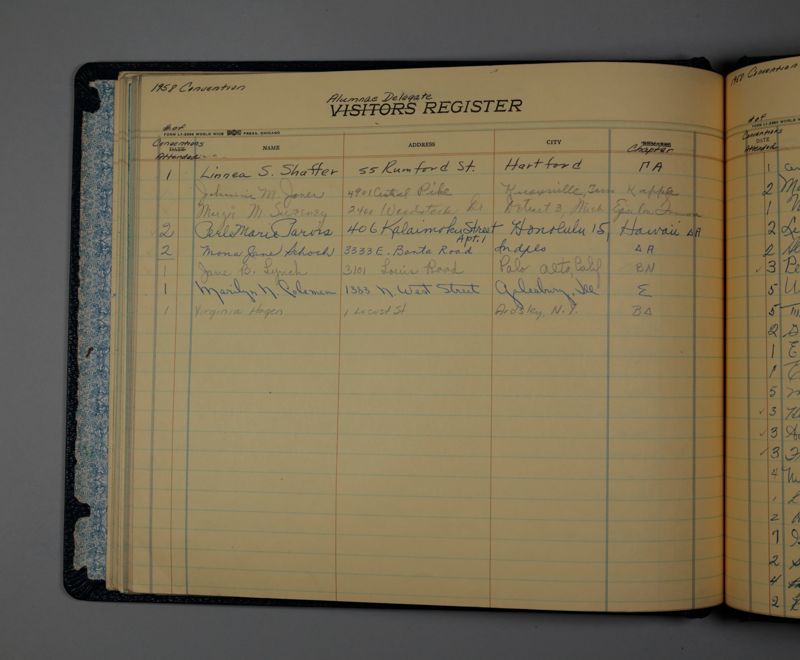 1958 Convention
Alumnae Delegate
VISITORS REGISTER
# of
Conventions
Attended
FORM L1-2884 WORLD WIDE PRESS, CHICAGO
DATE NAME ADDRESS CITY REMARKS
Chapter
1 Linnea S. Shaffer 55 Rumford St. Hartford ΓΑ
Johnnie M. Jones 4901 Central Pike Knoxville, Tenn Kappa
M. Sweeney Woodstock Dr. Detroit 3, Mich Epsilon
2 Perle Marie Parvis 406 Kalaimoku Street Honolulu 15, Hawaii ΔΑ
Apt. 1
2 Mona Jane Schoch 3333 E. Banta Road Indpls ΔΑ
1 Jane B. Lynch 3101 Louis Road Palo Alto, Calif BN
1 Marilyn N. Coleman 1383 N. West Street Galesburg, Ill Σ
1 Virginia Hagen 1 Locust St Ardsley, N.Y. ΒΔ
1958 Convention
# of
Conventions
DATE
Attended
1
2
1
2
2
3
5
5
2
1
1
5
3
3
3
4
1
2
7
2
4
2